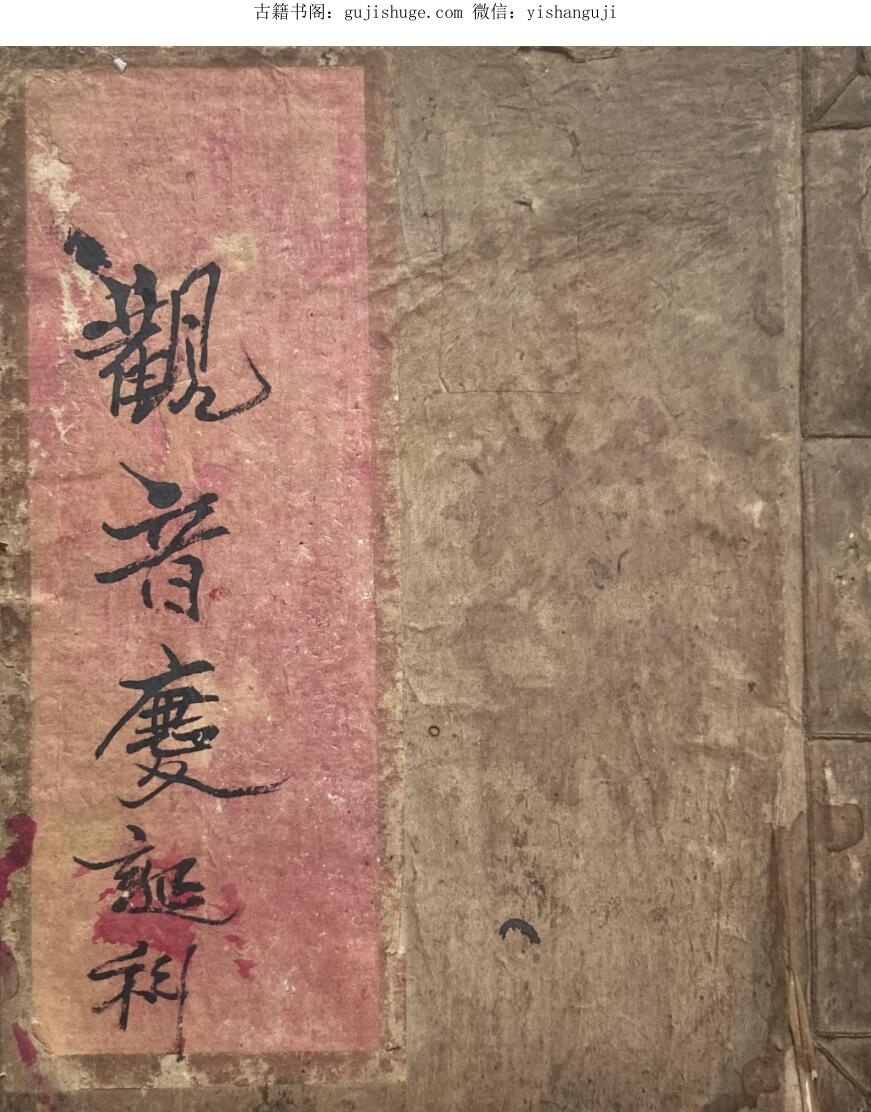 古籍书阁：gujishuge.com 微信：yishanguji
觀音慶誕科